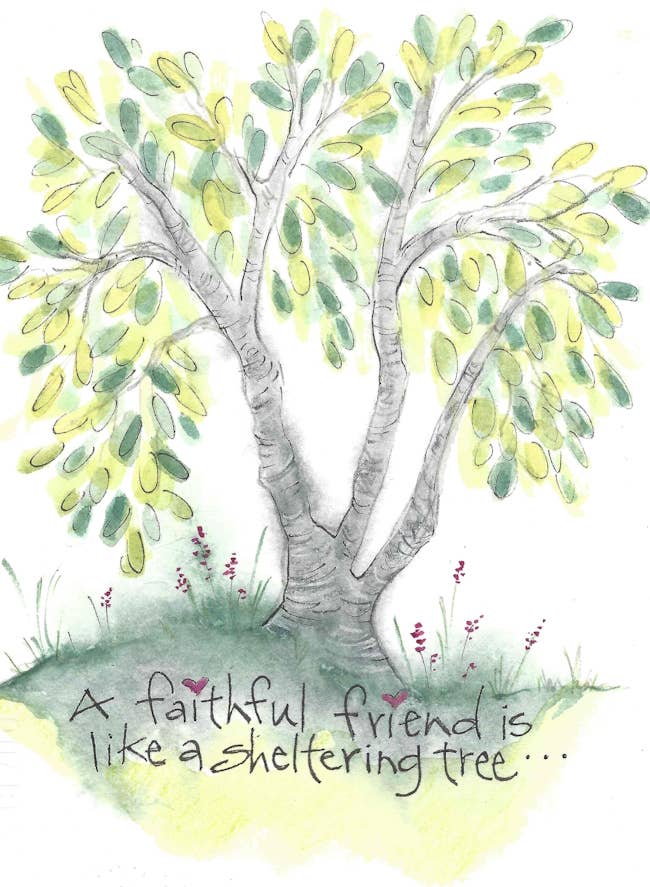 A faithful friend is
like a sheltering tree...